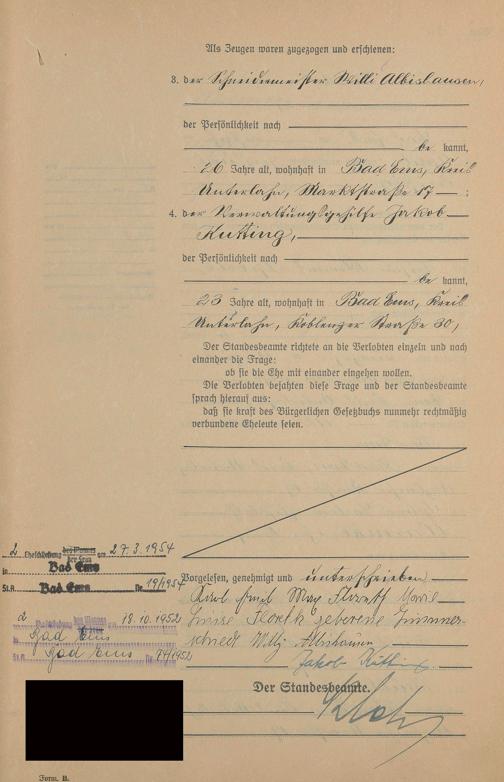 Als Zeugen waren zugezogen und erschienen:
3. der Schneidermeister Willi Albishausen,
der Persönlichkeit nach
be kannt,
26 Jahre alt, wohnhaft in Bad Ems, Kreis
Unterlahn, Marktstraße 17 ;
4. der Verwaltungsgehilfe Jakob
Kutting,
der Persönlichkeit nach
be kannt,
23 Jahre alt, wohnhaft in Bad Ems, Kreis
Unterlahn, Koblenzer Straße 30,
Der Standesbeamte richtete an die Verlobten einzeln und nach
einander die Frage:
ob sie die Ehe mit einander eingehen wollen.
Die Verlobten bejahten diese Frage und der Standesbeamte
sprach hierauf aus:
daß sie kraft des Bürgerlichen Gesetzbuchs nunmehr rechtmäßig
verbundene Eheleute seien.
2 Eheschließung des Mannes am 27.3.1954
der Frau
in Bad Ems
St.A. Bad Ems Nr. 19/1954
2 Eheschließung des Mannes am 18.10.1952
in Bad Ems
St.A. Bad Ems Nr. /1952
Vorgelesen, genehmigt und unterschrieben
Karl Emil Max Marie
Luise geborene Zimmer-
schied Willy Albishausen
Jakob Kutting
Der Standesbeamte.
Form. B.